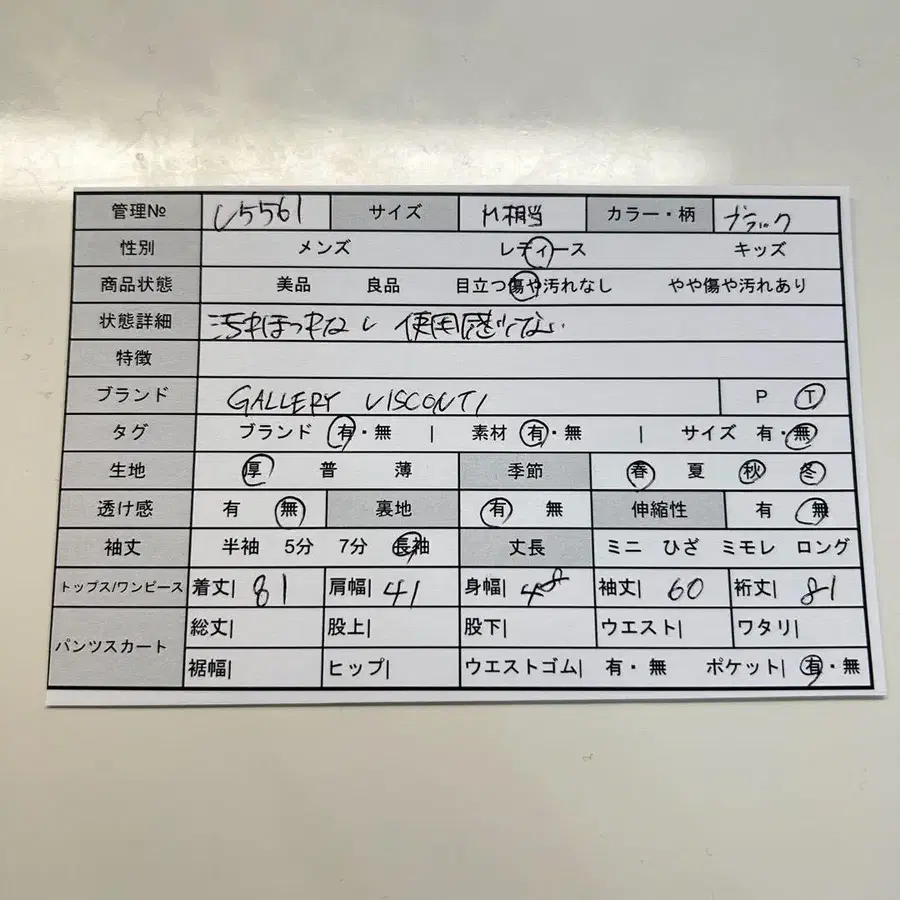 管理№ サイズ M相当 カラー・柄 ブラック
性別 メンズ レディース キッズ
商品状態 美品 良品 目立つ傷や汚れなし やや傷や汚れあり
状態詳細 使用感
特徴
ブランド GALLERY VISCONTI P T
タグ ブランド 有・無 | 素材 有・無 | サイズ 有・無
生地 厚 普 薄 季節 春 夏 秋 冬
透け感 有 無 裏地 有 無 伸縮性 有 無
袖丈 半袖 5分 7分 長袖 丈長 ミニ ひざ ミモレ ロング
トップス/ワンピース 着丈| 81 肩幅| 41 身幅| 48 袖丈| 60 裄丈| 81
パンツスカート 総丈| 股上| 股下| ウエスト| ワタリ|
裾幅| ヒップ| ウエストゴム| 有・無 ポケット| 有・無